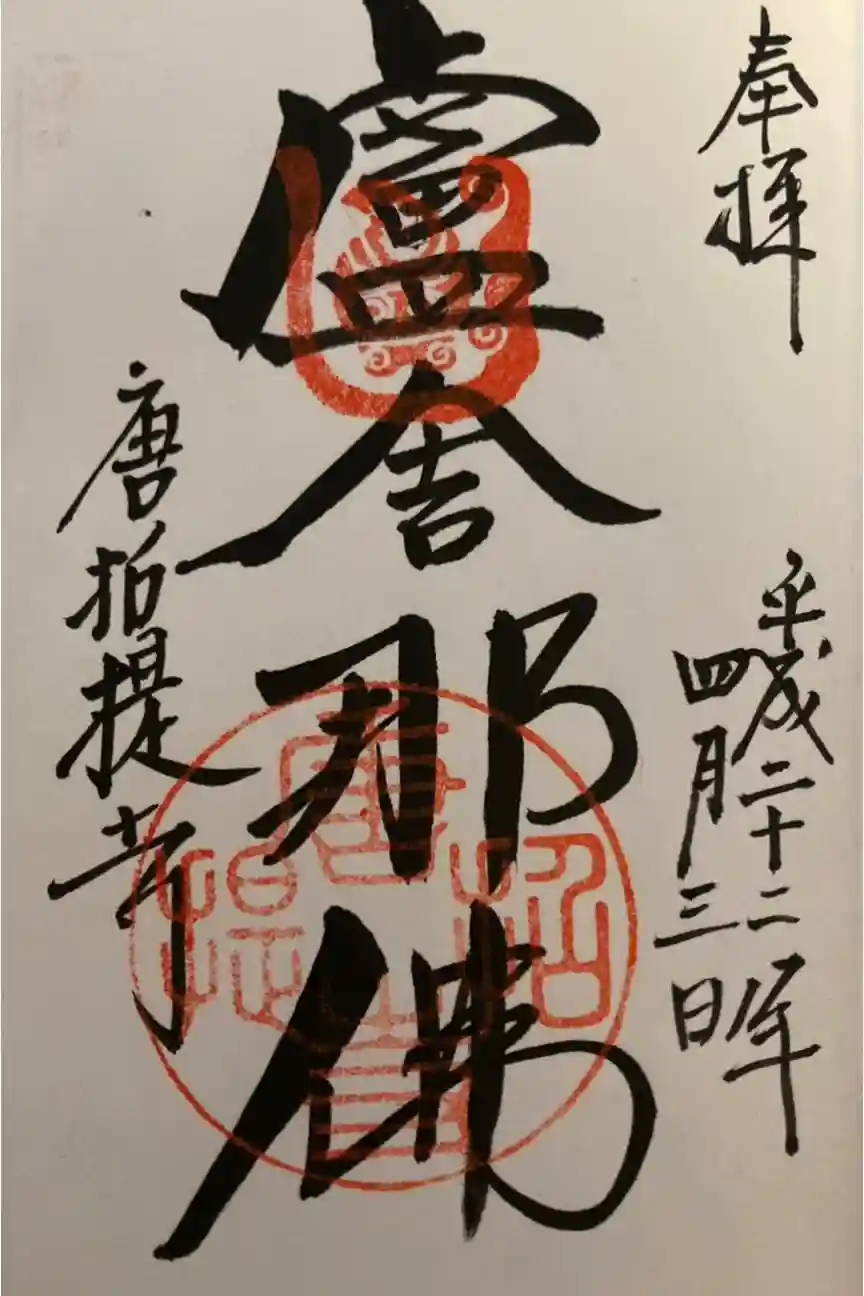 奉拝
平成二十二年
四月三日
盧舎那佛
唐招提寺